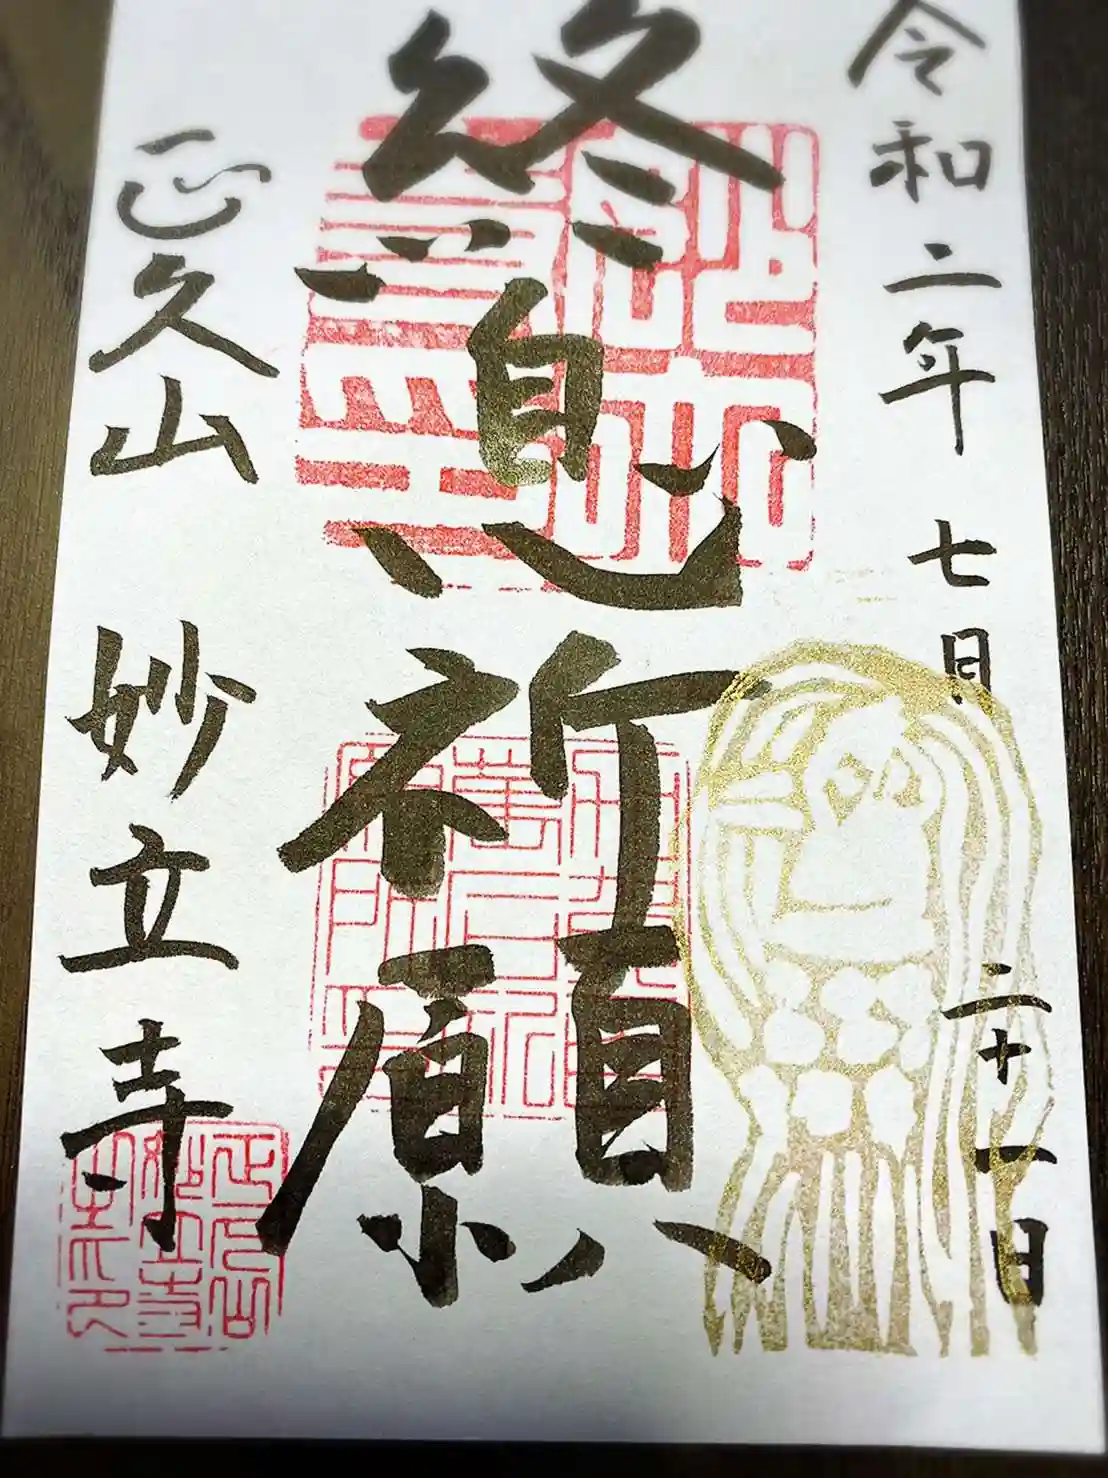 令和二年 七月 二十一日
終息祈願
正久山 妙立寺